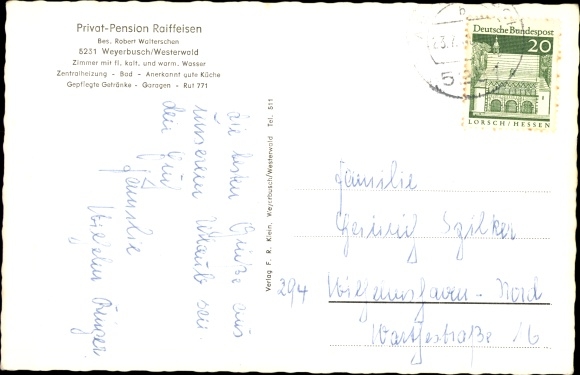 Privat-Pension Raiffeisen
Bes. Robert Walterschen
5231 Weyerbusch/Westerwald
Zimmer mit fl. kalt. und warm. Wasser
Zentralheizung - Bad - Anerkannt gute Küche
Gepflegte Getränke - Garagen - Ruf 771
die besten Grüße aus
unserem Urlaub sen-
den
Familie
Wilhelm
Verlag F. R. Klein, Weyerbusch/Westerwald Tel. 511
Deutsche Bundespost
20
LORSCH/HESSEN
Familie
Heinrich
294 Wilhelmshaven-Nord
Wartestraße 16